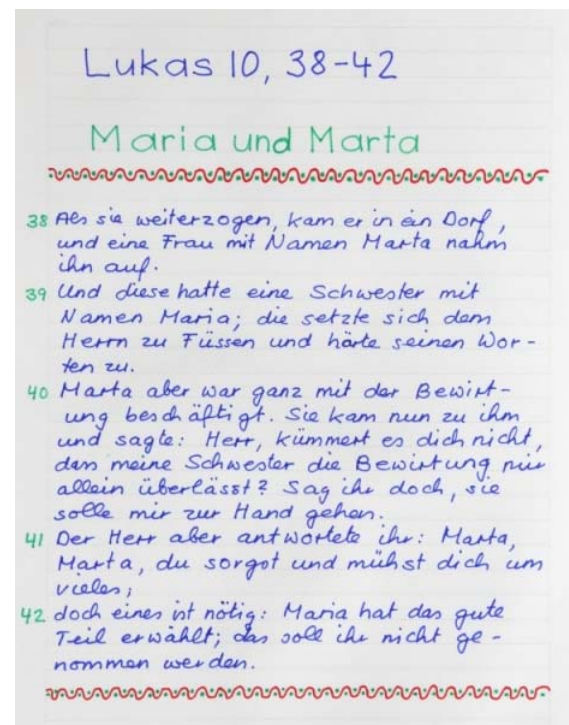 Lukas 10, 38-42
Maria und Marta
38 Als sie weiterzogen, kam er in ein Dorf,
und eine Frau mit Namen Marta nahm
ihn auf.
39 Und diese hatte eine Schwester mit
Namen Maria; die setzte sich dem
Herrn zu Füssen und hörte seinen Wor-
ten zu.
40 Marta aber war ganz mit der Bewirt-
ung beschäftigt. Sie kam nun zu ihm
und sagte: Herr, kümmert es dich nicht,
dass meine Schwester die Bewirtung mir
allein überlässt? Sag ihr doch, sie
solle mir zur Hand gehen.
41 Der Herr aber antwortete ihr: Marta,
Marta, du sorgst und mühst dich um
vieles;
42 doch eines ist nötig: Maria hat das gute
Teil erwählt; das soll ihr nicht ge-
nommen werden.